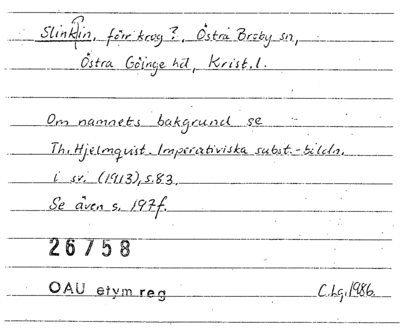 Slinkin, förr krog?, Östra Broby sn,
Östra Göinge hd, Krist. l.
Om namnets bakgrund se
Th. Hjelmqvist. Imperativiska subst.-bildn.
i sv. (1913), s. 83.
Se även s. 197f.
26758
OAU etym reg C.Lg. 1986.